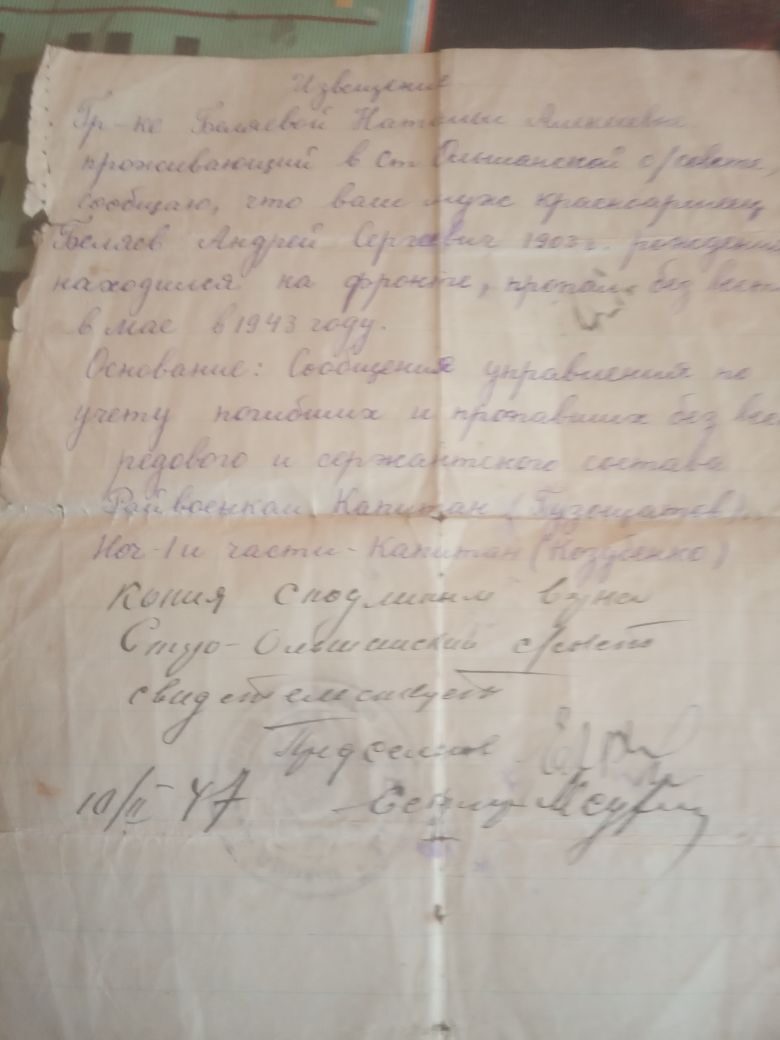 Извещение
Гр-ке Беляевой Натальи Алексеевне
проживающий в ст. Ольшанской с/совете,
сообщаю, что ваш муж красноармеец
Беляев Андрей Сергеевич 1903 г. рождения
находился на фронте, пропал без вести
в мае в 1943 году.
Основание: Сообщения управления по
учету погибших и пропавших без вес
редового и сержантского состава
Райвоенком Капитан
Нач-1 и части - Капитан (Козубенко)
Копия с подлиным верна
Ольшанский с/совет
свидетельствует
Предсель
10/II 47 Секр